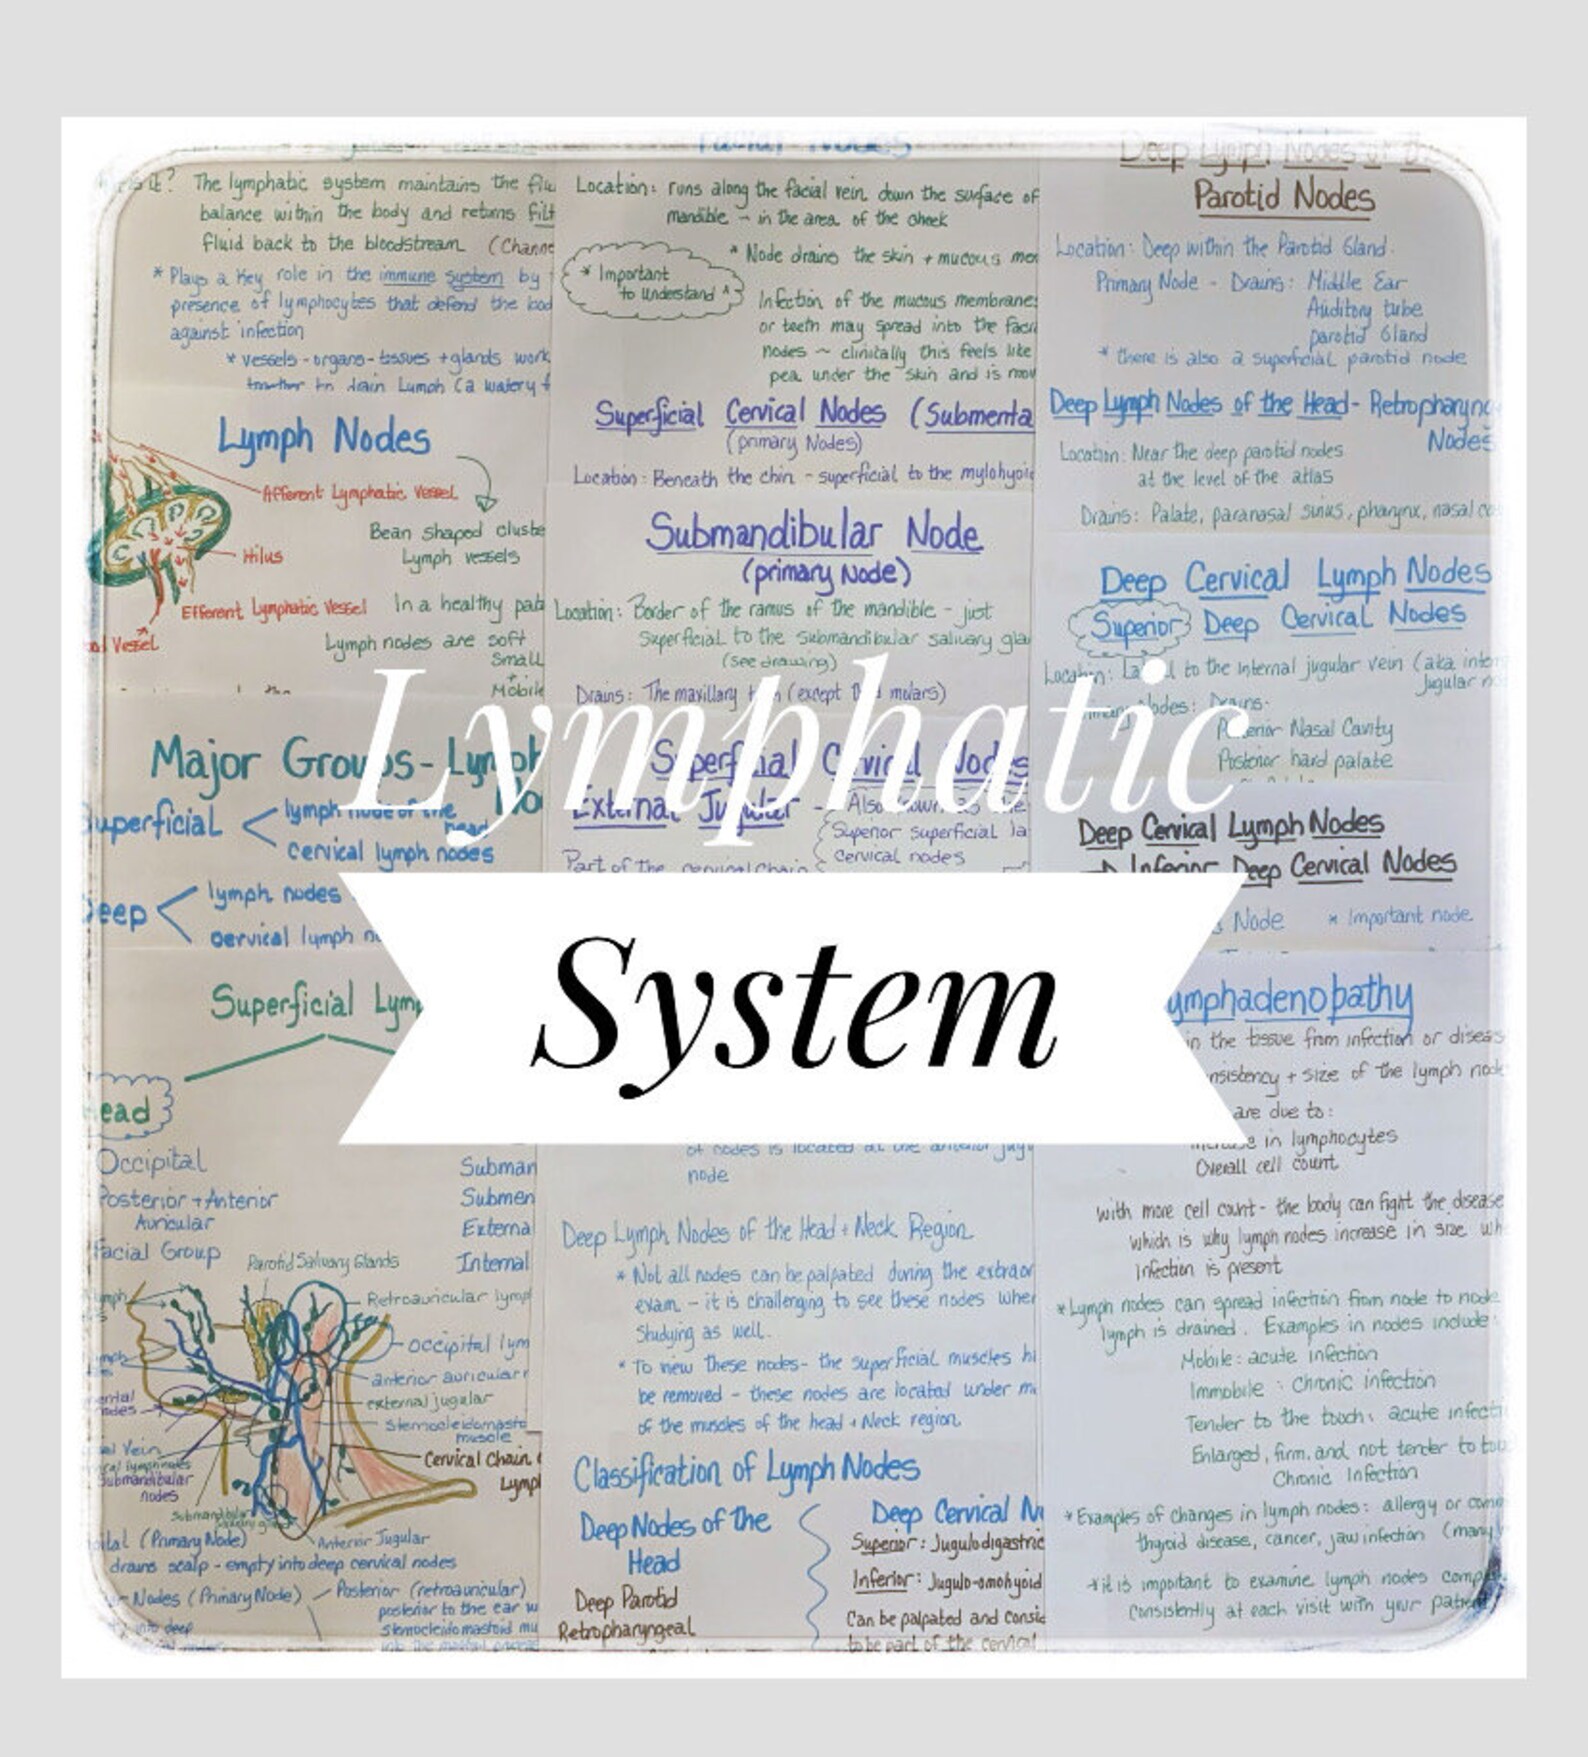 The lymphatic system maintains the
balance within the body and returns
fluid back to the bloodstream
* Plays a key role in the immune system by
presence of lymphocytes that defend the
against infection
* vessels - organs - tissues + glands work
together to drain Lymph (a watery
Lymph Nodes
Afferent Lymphatic Vessel
Bean shaped
Lymph vessels
Hilus
Efferent Lymphatic Vessel
In a healthy
Vessel
Lymph nodes are soft
Small
Mobile
Major Groups - Lymph
Superficial
lymph node of the
head
cervical lymph nodes
Deep
lymph nodes
cervical lymph
Superficial
Head
Occipital
Posterior + Anterior
Auricular
Facial Group
Subman
Submen
External
Internal
Parotid Salivary Glands
Retroauricular
occipital
anterior auricular
external jugular
Sternocleidomasto
muscle
Cervical Chain
Submandibular
nodes
Anterior Jugular
(Primary Node)
drains scalp - empty into deep cervical nodes
Nodes (Primary Node)
Posterior (retroauricular)
posterior to the ear
sternocleidomastoid
into deep
Facial Nodes
Location: runs along the facial vein down the surface of
mandible - in the area of the cheek
* Important
to Understand *
* Node drains the skin + mucous
Infection of the mucous membranes
or teeth may spread into the
nodes ~ clinically this feels like
pea under the skin and is
Superficial Cervical Nodes (Submenta
(primary Nodes)
Location: Beneath the chin - superficial to the
Submandibular Node
(primary Node)
Location: Border of the ramus of the mandible - just
Superficial to the submandibular salivary
(see drawing)
Drains: The maxillary (except molars)
Superficial Cervical Nodes
External Jugular
Also known as the
Superior superficial
cervical nodes
Part of the cervical chain
of nodes is located at the anterior
node
Deep Lymph Nodes of the Head + Neck Region
* Not all nodes can be palpated during the
exam - it is challenging to see these nodes
studying as well.
* To view these nodes - the superficial muscles
be removed - these nodes are located under
of the muscles of the head + Neck region
Classification of Lymph Nodes
Deep Nodes of the
Head
Deep Parotid
Retropharyngeal
Deep Cervical
Superior: Jugulodigastric
Inferior: Jugulo-omohyoid
Can be palpated and
to be part of the cervical
Deep Lymph Nodes of
Parotid Nodes
Location: Deep within the Parotid Gland.
Primary Node - Drains: Middle Ear
Auditory tube
parotid Gland
* there is also a superficial parotid node
Deep Lymph Nodes of the Head - Retropharyng
Nodes
Location: Near the deep parotid nodes
at the level of the atlas
Drains: Palate, paranasal sinus, pharynx, nasal
Deep Cervical Lymph Nodes
Superior Deep Cervical Nodes
Location: to the internal jugular vein (aka
jugular
Nodes: Drains:
Posterior Nasal Cavity
Posterior hard palate
Deep Cervical Lymph Nodes
Inferior Deep Cervical Nodes
Node * Important node
ymphadenopathy
in the tissue from infection or
+ size of the lymph
are due to:
increase in lymphocytes
Overall cell count
with more cell count - the body can fight the disease
which is why lymph nodes increase in size
infection is present
* Lymph nodes can spread infection from node to node
lymph is drained. Examples in nodes include:
Mobile: acute infection
Immobile: Chronic infection
Tender to the touch: acute
Enlarged, firm and not tender to
Chronic Infection
* Examples of changes in lymph nodes: allergy or
thyroid disease, cancer, jaw infection (many
* it is important to examine lymph nodes
consistently at each visit with your
Lymphatic
System